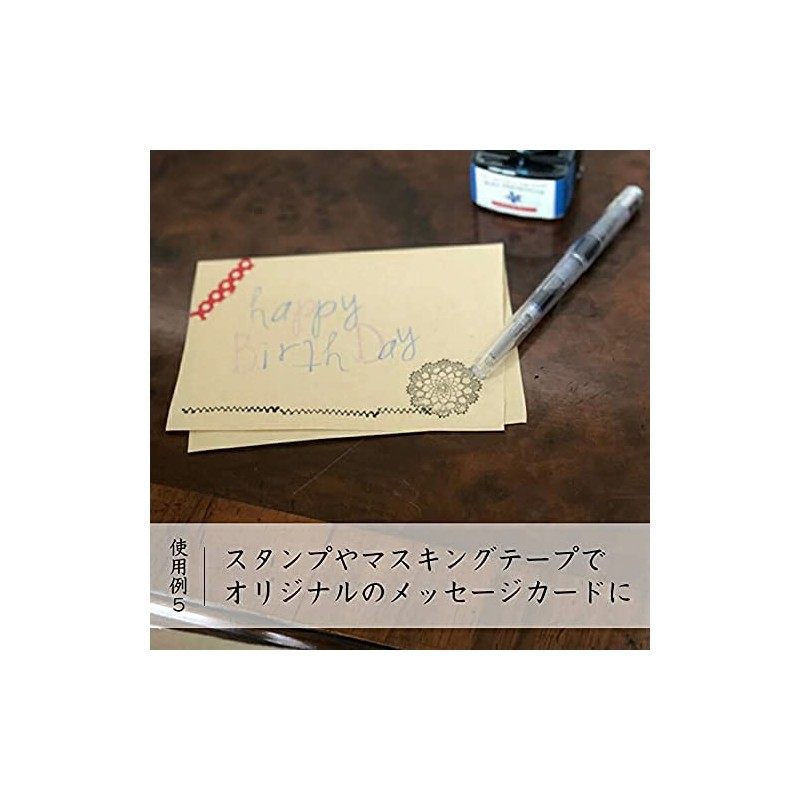 happy
Birth Day
使用例5
スタンプやマスキングテープで
オリジナルのメッセージカードに